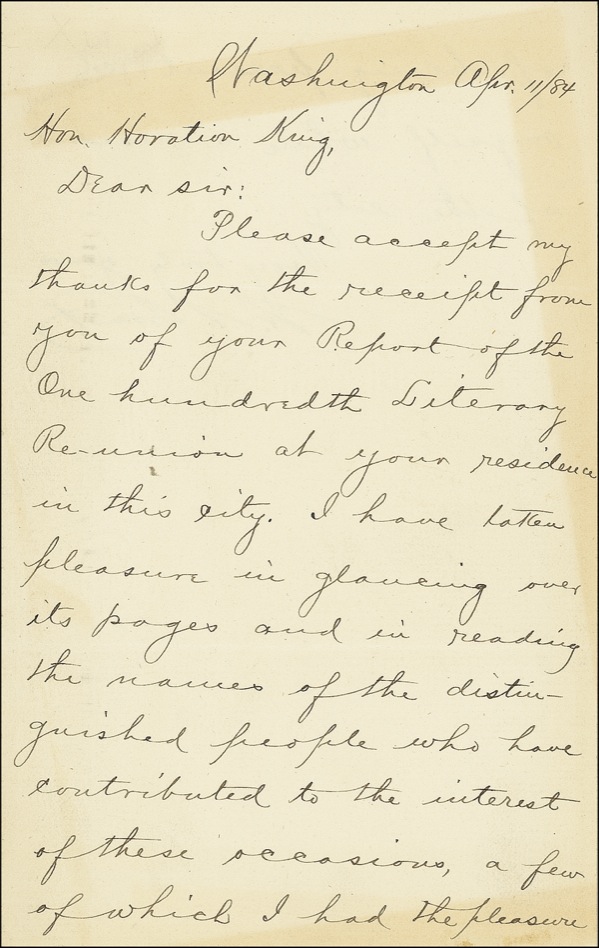 Washington Apr. 11/84
Hon. Horation King,
Dear sir:
Please accept my
thanks for the receipt from
you of your Report of the
One hundredth Literary
Re-union at your residence
in this city. I have taken
pleasure in glancing over
its pages and in reading
the names of the distin-
guished people who have
contributed to the interest
of these occasions, a few
of which I had the pleasure